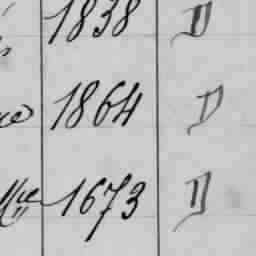 1838 D
1864 D
1673 D